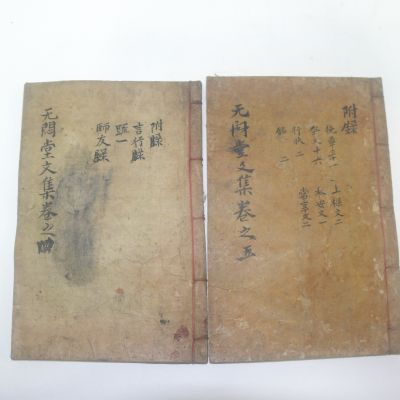 无悶堂文集卷之四
附錄
言行錄
疏一
師友錄
无悶堂文集卷之五
附錄
上樑文二
祭文十六
奉安文一
行狀二
常享文二
銘二